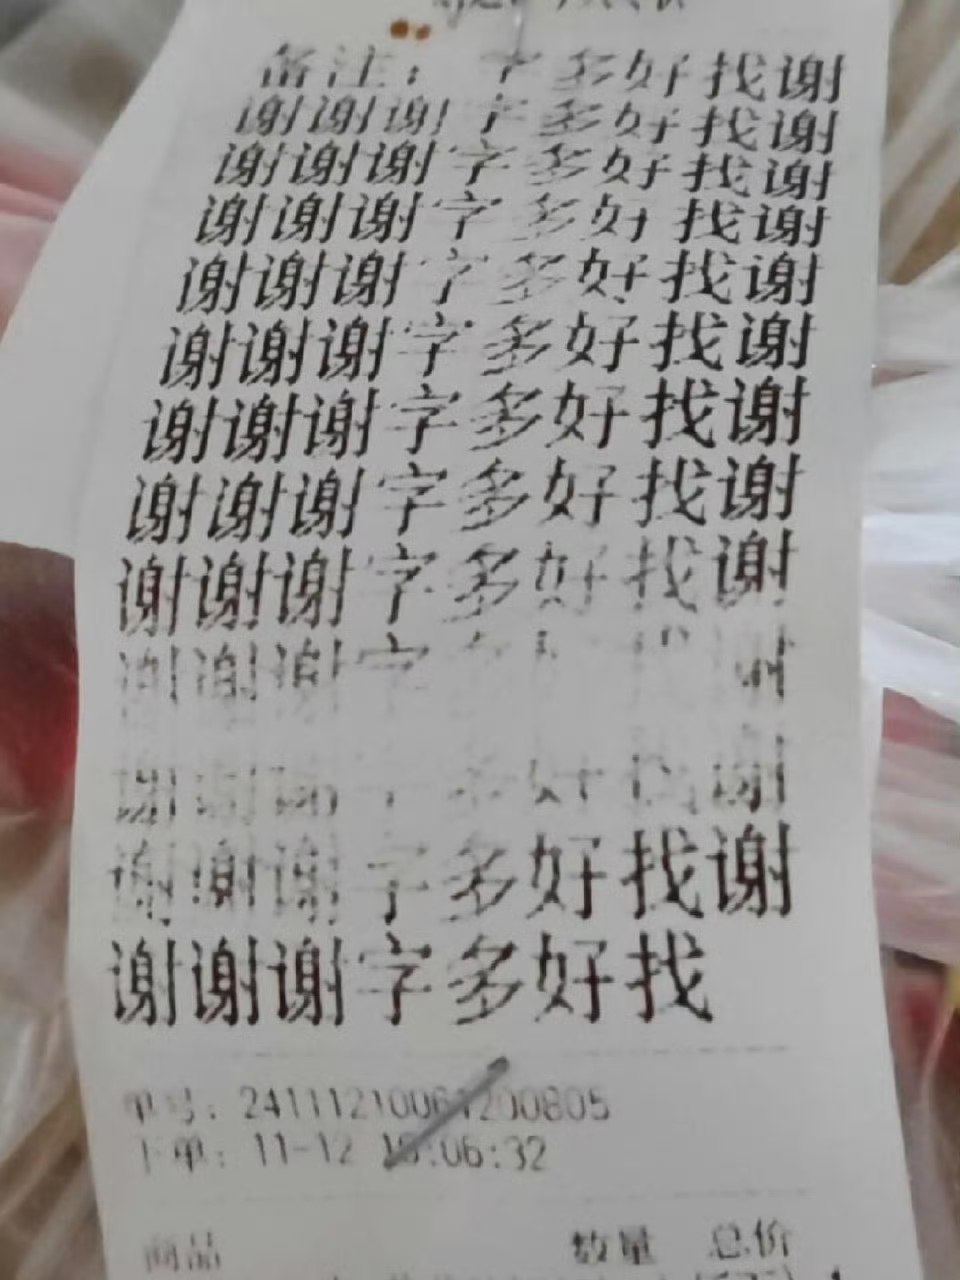 备注：字多好找谢
谢谢谢字多好找谢
谢谢谢字多好找谢
谢谢谢字多好找谢
谢谢谢字多好找谢
谢谢谢字多好找谢
谢谢谢字多好找谢
谢谢谢字多好找谢
谢谢谢字多好找谢
谢谢谢字多好找谢
谢谢谢字多好找谢
谢谢谢字多好找谢
谢谢谢字多好找
单号：
下单：11-12
商品 数量 总价